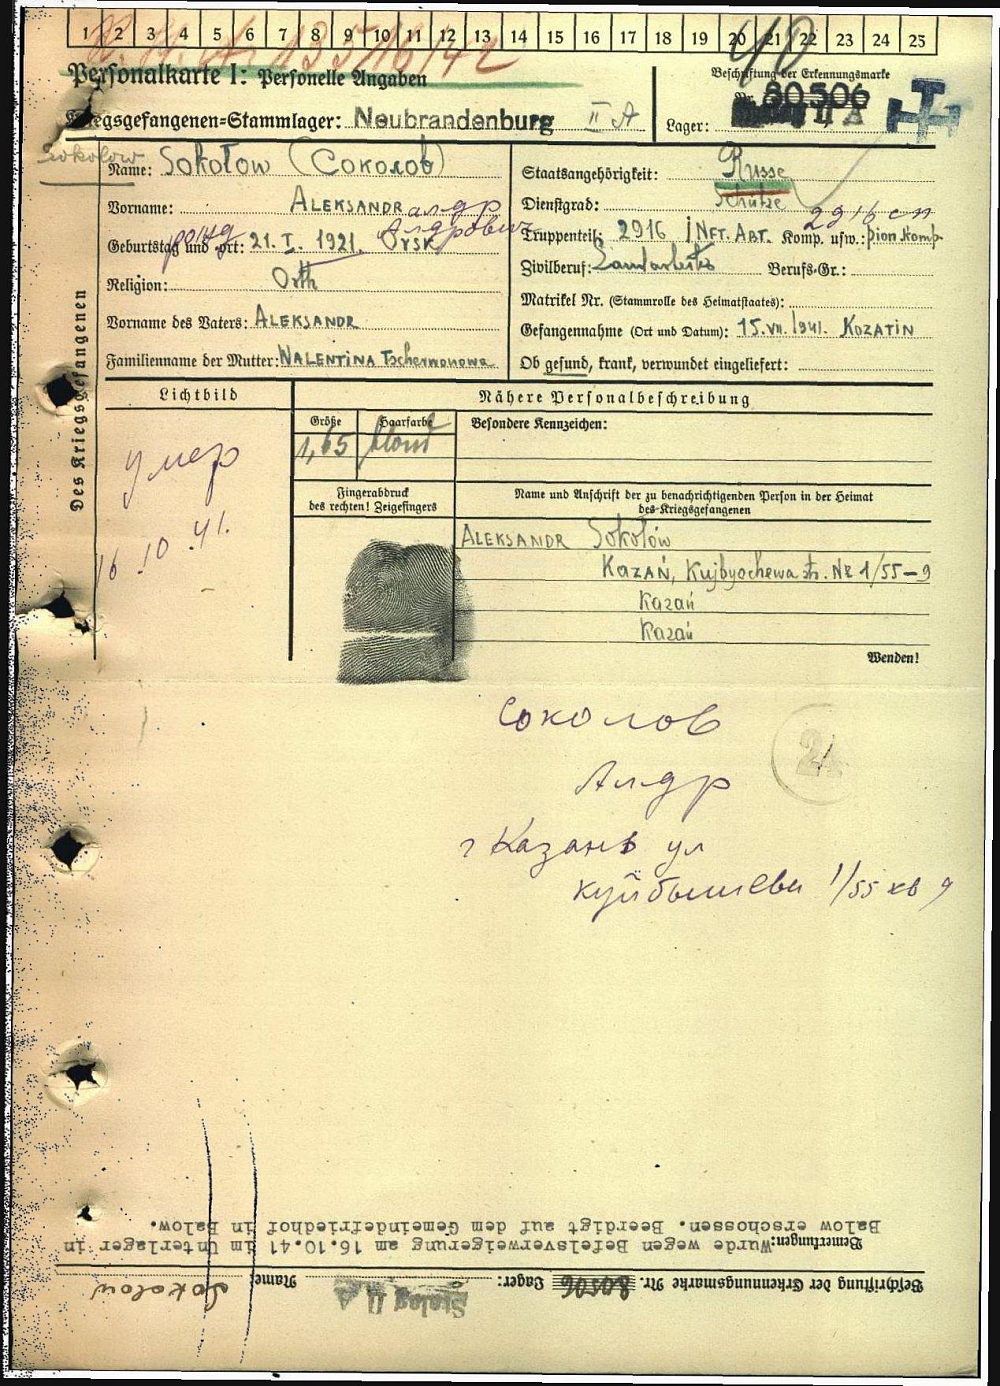 1 2 3 4 5 6 7 8 9 10 11 12 13 14 15 16 17 18 19 20 21 22 23 24 25
40
Personalkarte I: Personelle Angaben
Beschriftung der Erkennungsmarke
Nr. 80506
Kriegsgefangenen-Stammlager: Neubrandenburg II A
Lager: II A
Sokolow
Name: Sokołow (Соколов)
Staatsangehörigkeit: Russe
Vorname: ALEKSANDR Алдр
Dienstgrad: Schütze
Алдрович 2916 сп
Geburtstag und -ort: 21. I. 1921. Orsk
Truppenteil: 2916 INFT. ABT. Komp. usw.: Pion. Komp
Religion: Orth
Zivilberuf: Landarbeiter Berufs-Gr.:
Matrikel Nr. (Stammrolle des Heimatstaates):
Vorname des Vaters: ALEKSANDR
Gefangennahme (Ort und Datum): 15. VII. 1941. KOZATIN
Familienname der Mutter: WALENTINA Tschernonowa
Ob gesund, krank, verwundet eingeliefert:
Des Kriegsgefangenen
Lichtbild
Nähere Personalbeschreibung
Größe Haarfarbe Besondere Kennzeichen:
1,65 blond
Умер
16.10.41.
Fingerabdruck
des rechten! Zeigefingers
Name und Anschrift der zu benachrichtigenden Person in der Heimat
des Kriegsgefangenen
ALEKSANDR Sokołow
KAZAŃ, Kujbyschewa str. № 1/55-9
Kazań
Kazań
Wenden!
Соколов
24
Алдр
г Казань ул
Куйбышева 1/55 кв 9
Beschriftung der Erkennungsmarke Nr. 80506 Lager: Stalag II A Name: Sokolow
Bemerkungen: Wurde wegen Befelsverweigerung am 16.10.41 im Unterlager in
Balow erschossen. Beerdigt auf dem Gemeindefriedhof in Balow.